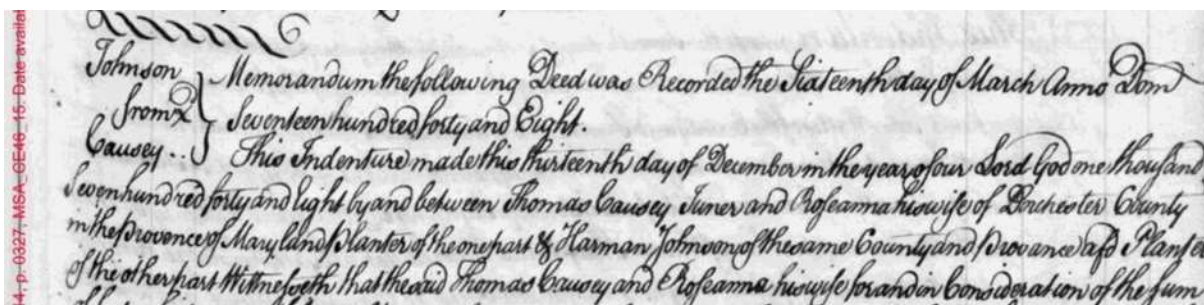 Johnson
from
Causey..
Memorandum the following Deed was Recorded the Sixteenth day of March Anno Dom
Seventeen hundred forty and Eight.
This Indenture made this thirteenth day of December in the year of our Lord God one thousand
Seven hundred forty and Eight by and between Thomas Causey Juner and Roseanna his wife of Dorchester County
in the Provence of Maryland Planter of the one part & Harman Johnson of the same County and Provance afsd Planter
of the other part Wittnesseth that the said Thomas Causey and Roseanna his wife for and in Consideration of the sum
14, p. 0327. MSA_CE46_15. Date availa